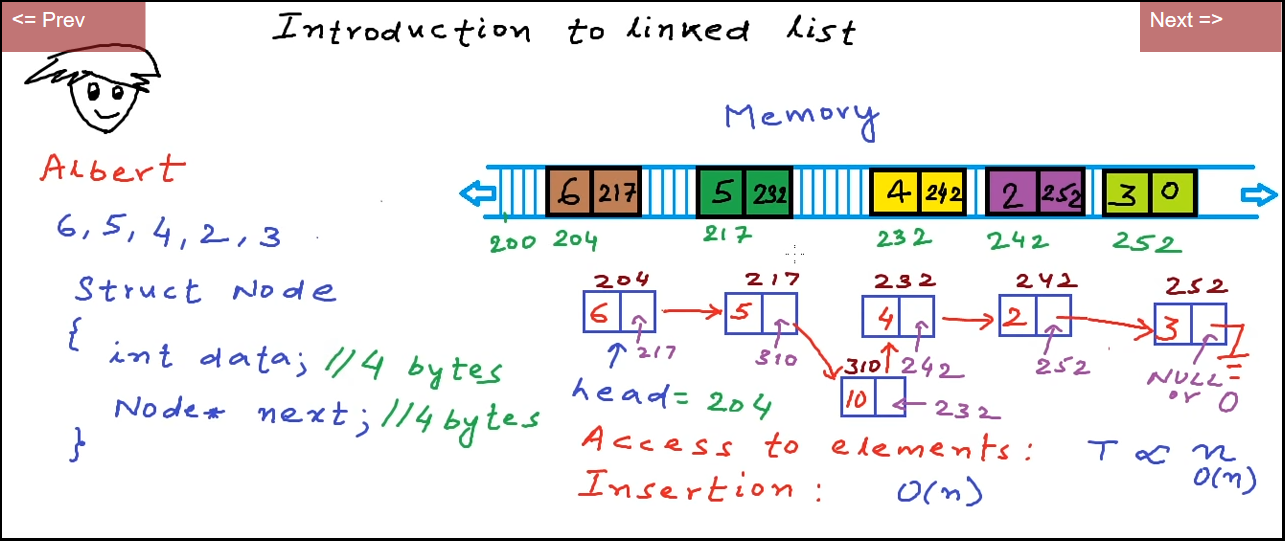 <= Prev
Next =>
Introduction to linked list
Albert
6, 5, 4, 2, 3
Struct Node
{
int data; //4 bytes
Node* next; //4 bytes
}
Memory
6 217 5 232 4 242 2 252 3 0
200 204 217 232 242 252
204 217 232 242 252
6 5 4 2 3
217 310 242 252 NULL or 0
310
10
232
head = 204
Access to elements: T ∝ n
O(n)
Insertion: O(n)